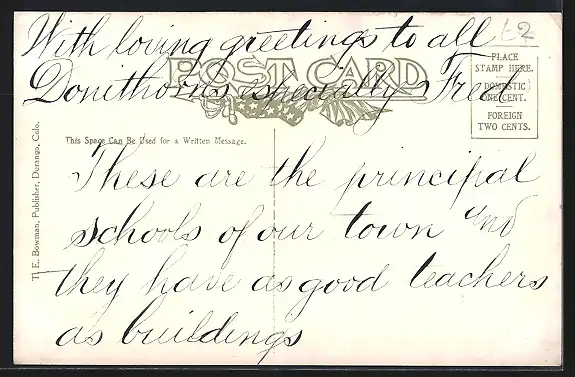 With loving greetings to all
L2
POST CARD
Donithorns especially Fred
PLACE
STAMP HERE.
DOMESTIC
ONE CENT.
FOREIGN
TWO CENTS.
This Space Can Be Used for a Written Message.
T. E. Bowman, Publisher, Durango, Colo.
These are the principal
schools of our town and
they have as good teachers
as buildings